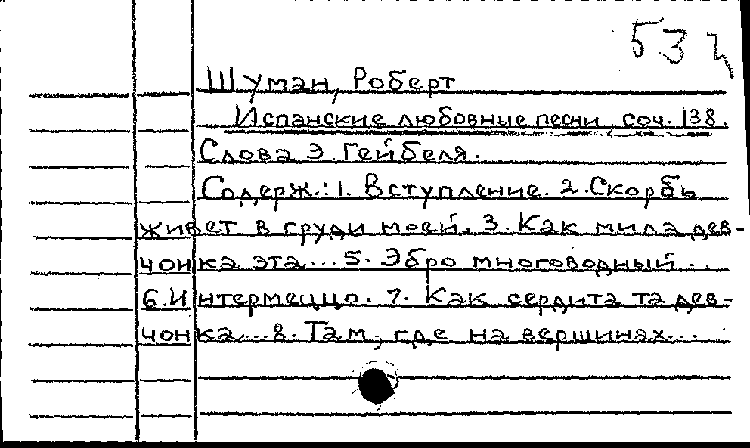 53
Шуман, Роберт
Испанские любовные песни соч. 138.
Слова Э. Гейбеля.
Содерж.: 1. Вступление. 2. Скорбь
живет в груди моей. 3. Как мила дев-
чонка эта... 5. Эбро многоводный...
6. Интермеццо. 7. Как сердита та дев-
чонка... 8. Там, где на вершинах...